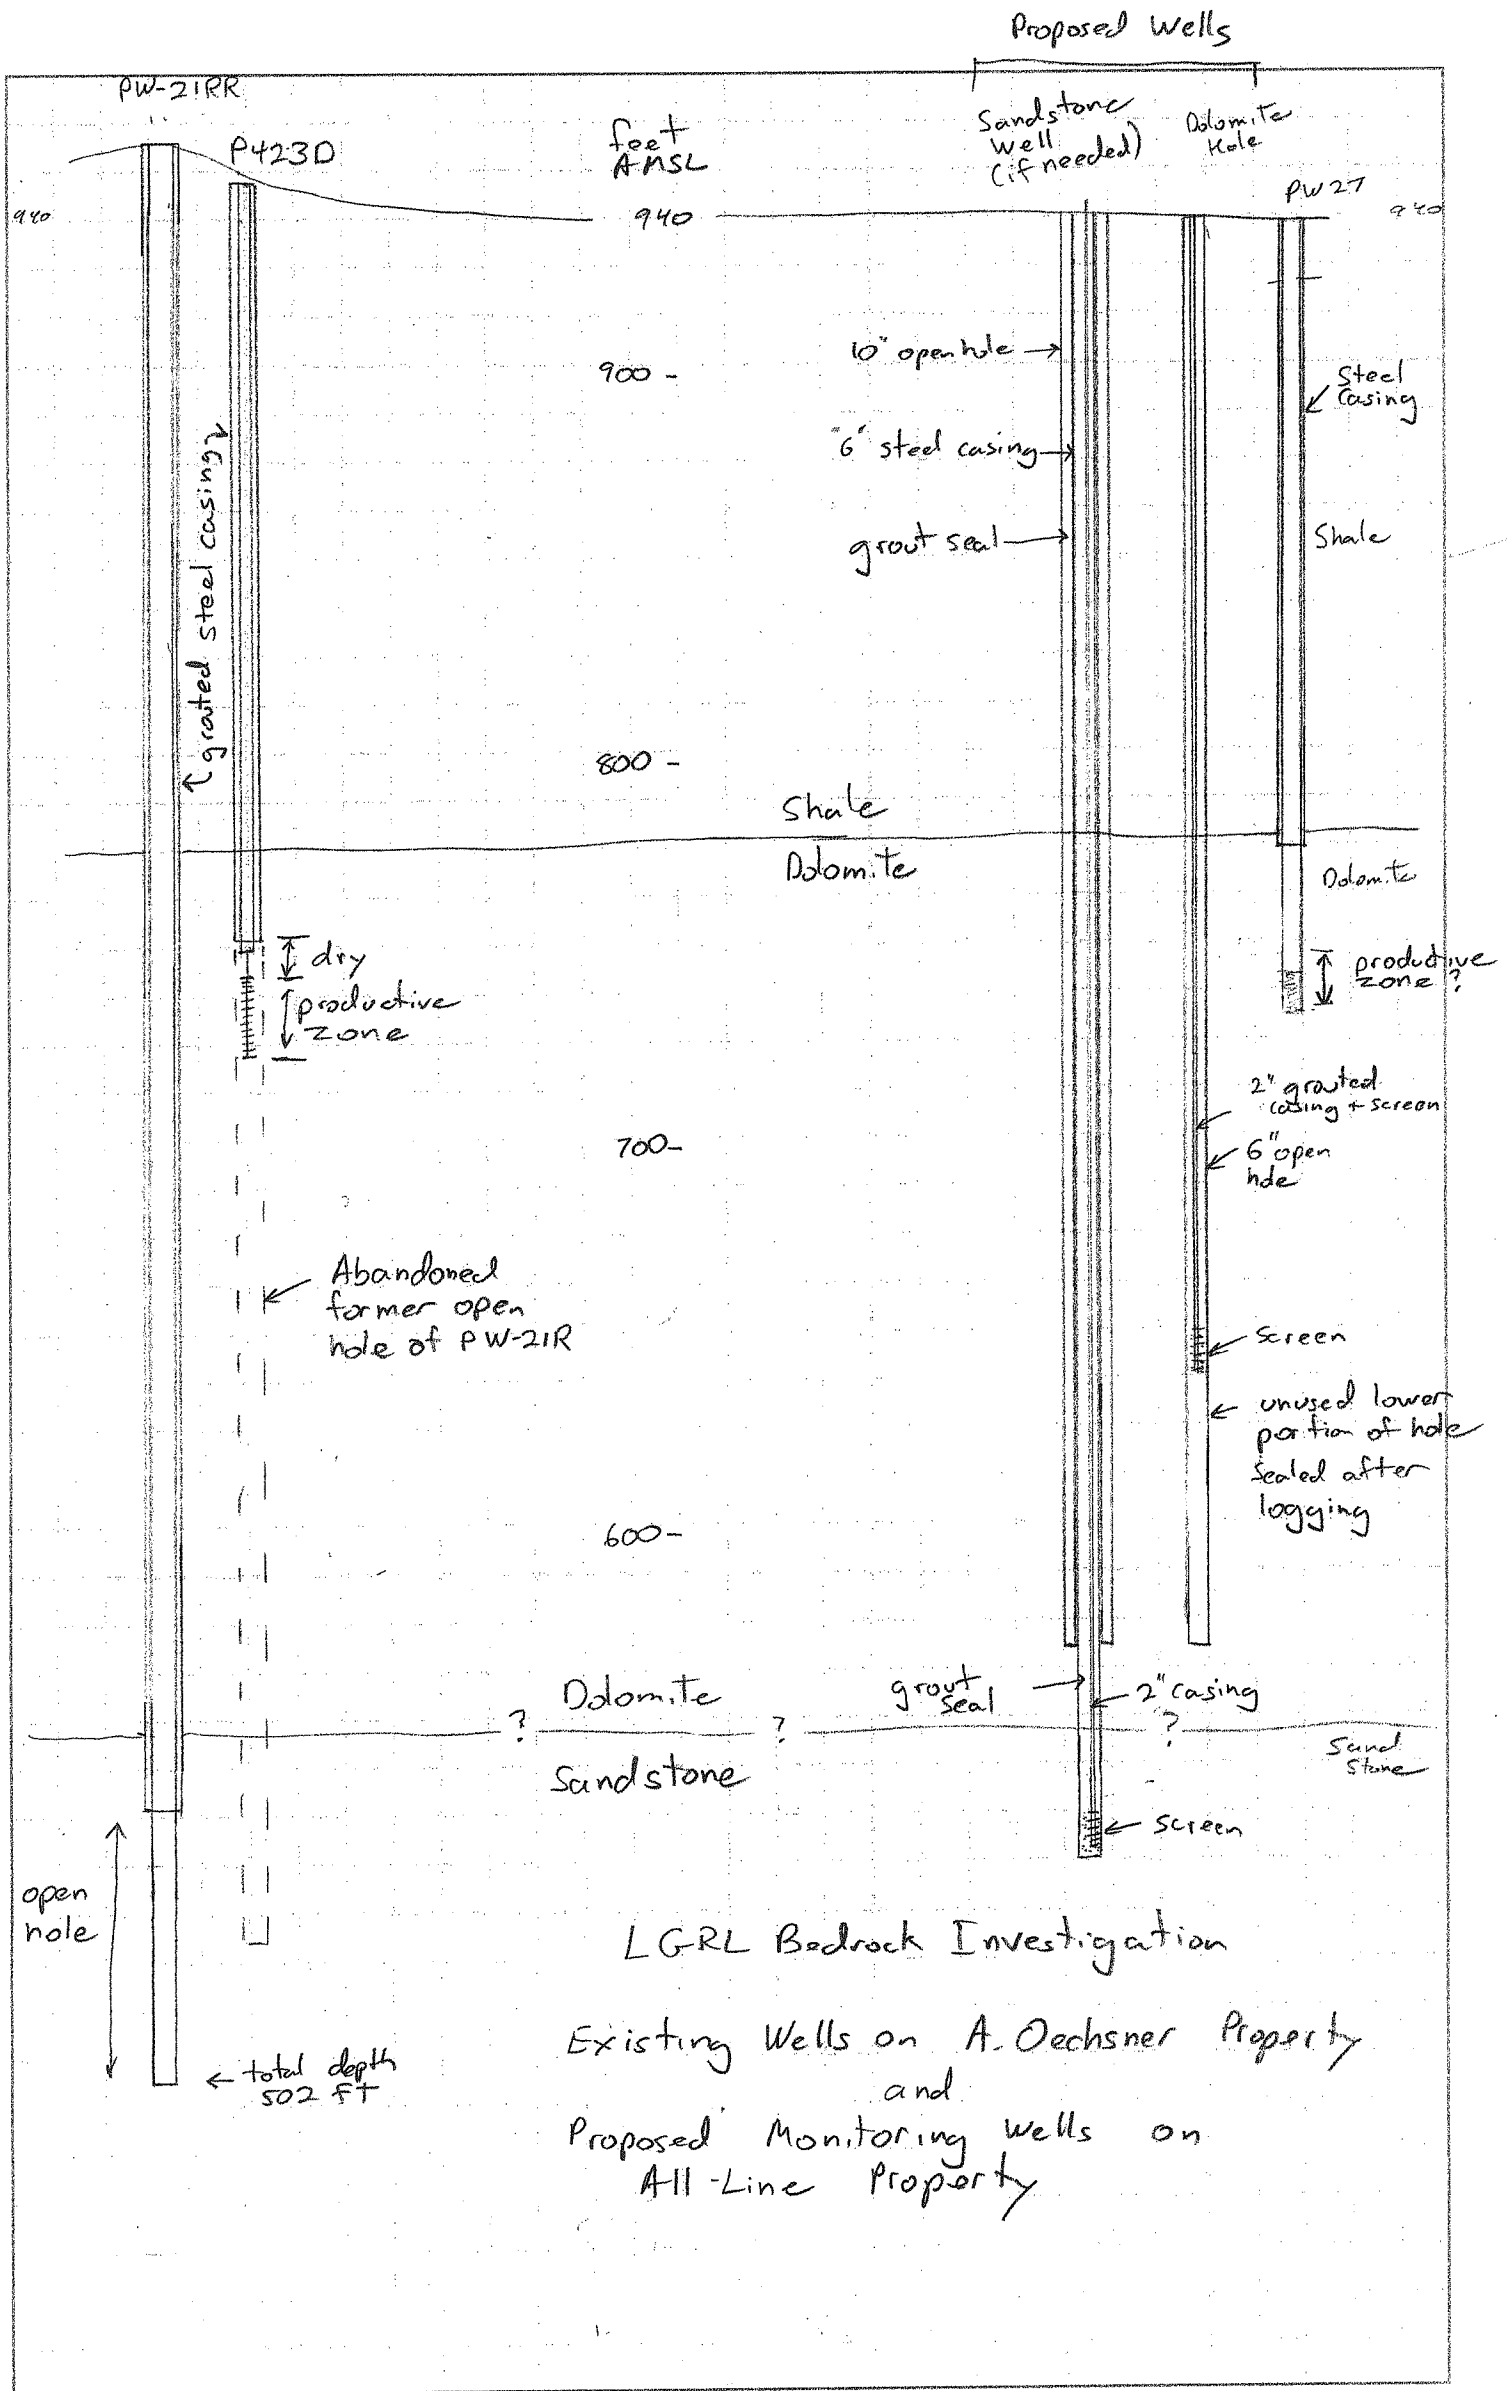 Proposed Wells
PW-21RR
P423D
feet
AMSL
Sandstone
Well
(if needed)
Dolomite
Hole
PW27
940
940
940
10" open hole
900 -
Steel
Casing
"6" steel casing
grouted steel casing
grout seal
Shale
800 -
Shale
Dolomite
Dolomite
dry
productive
zone
productive
zone ?
2" grouted
casing + screen
700-
6" open
hole
Abandoned
former open
hole of PW-21R
screen
unused lower
portion of hole
sealed after
logging
600-
Dolomite
grout
seal
2" casing
?
?
?
Sandstone
Sand
Stone
screen
open
hole
LGRL Bedrock Investigation
Existing Wells on A. Oechsner Property
and
Proposed Monitoring Wells on
All-Line Property
total depth
502 FT